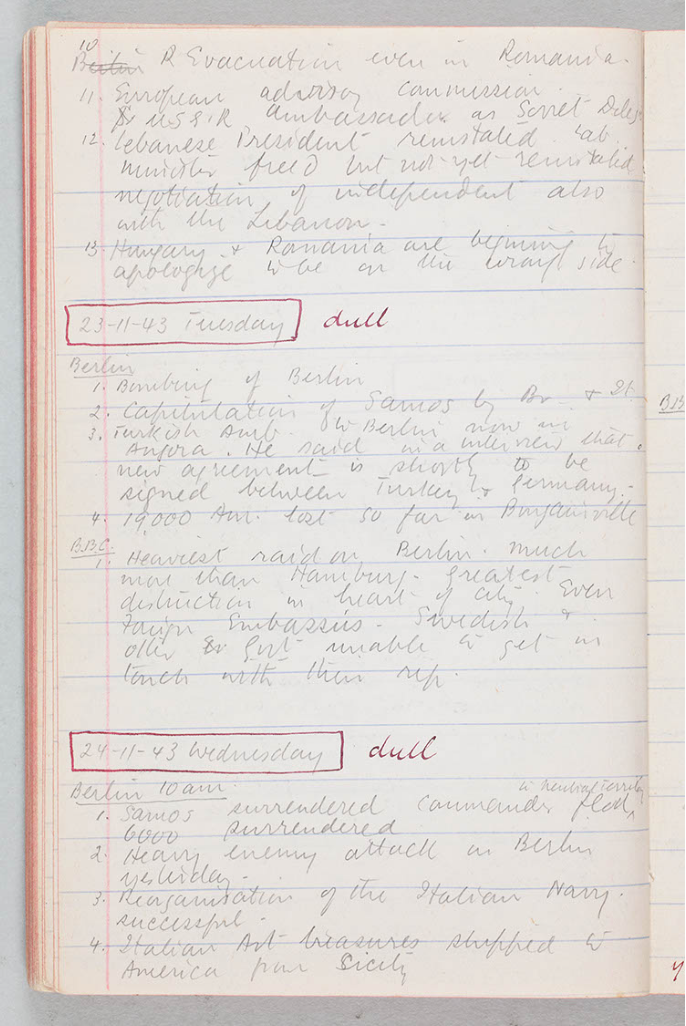 10
Berlin R Evacuation even in Romania.
11. European advisory commission.
& USSR ambassador as Soviet Deleg.
12. Lebanese President reinstated cab.
minister freed but not yet reinstated
negotiation of independent also
with the Lebanon.
13. Hungary & Romania are begining to
apologise to be on the wrong side.
23-11-43 Tuesday dull
Berlin
1. Bombing of Berlin
2. Capitulation of Samos by Br. & It.
3. Turkish Amb. to Berlin now in
Angora. He said in a interview that
new agreement is shortly to be
signed between Turkey & Germany.
4. 19,000 Am. lost so far in Bouganville
B.B.C.
1. Heaviest raid on Berlin. much
more than Hamburg. greatest
distruction in heart of city. Even
Foreign Embassies. Swedish &
other Govt unable to get in
touch with their rep.
24-11-43 Wednesday dull
Berlin 10 am.
in Neutral Territory
1. Samos surrendered Commander fled
6000 surrendered
2. Heavy enemy attack on Berlin
yesterday.
3. Reorganisation of the Italian Navy.
successful.
4. Italian Art treasures shipped to
America from Sicily